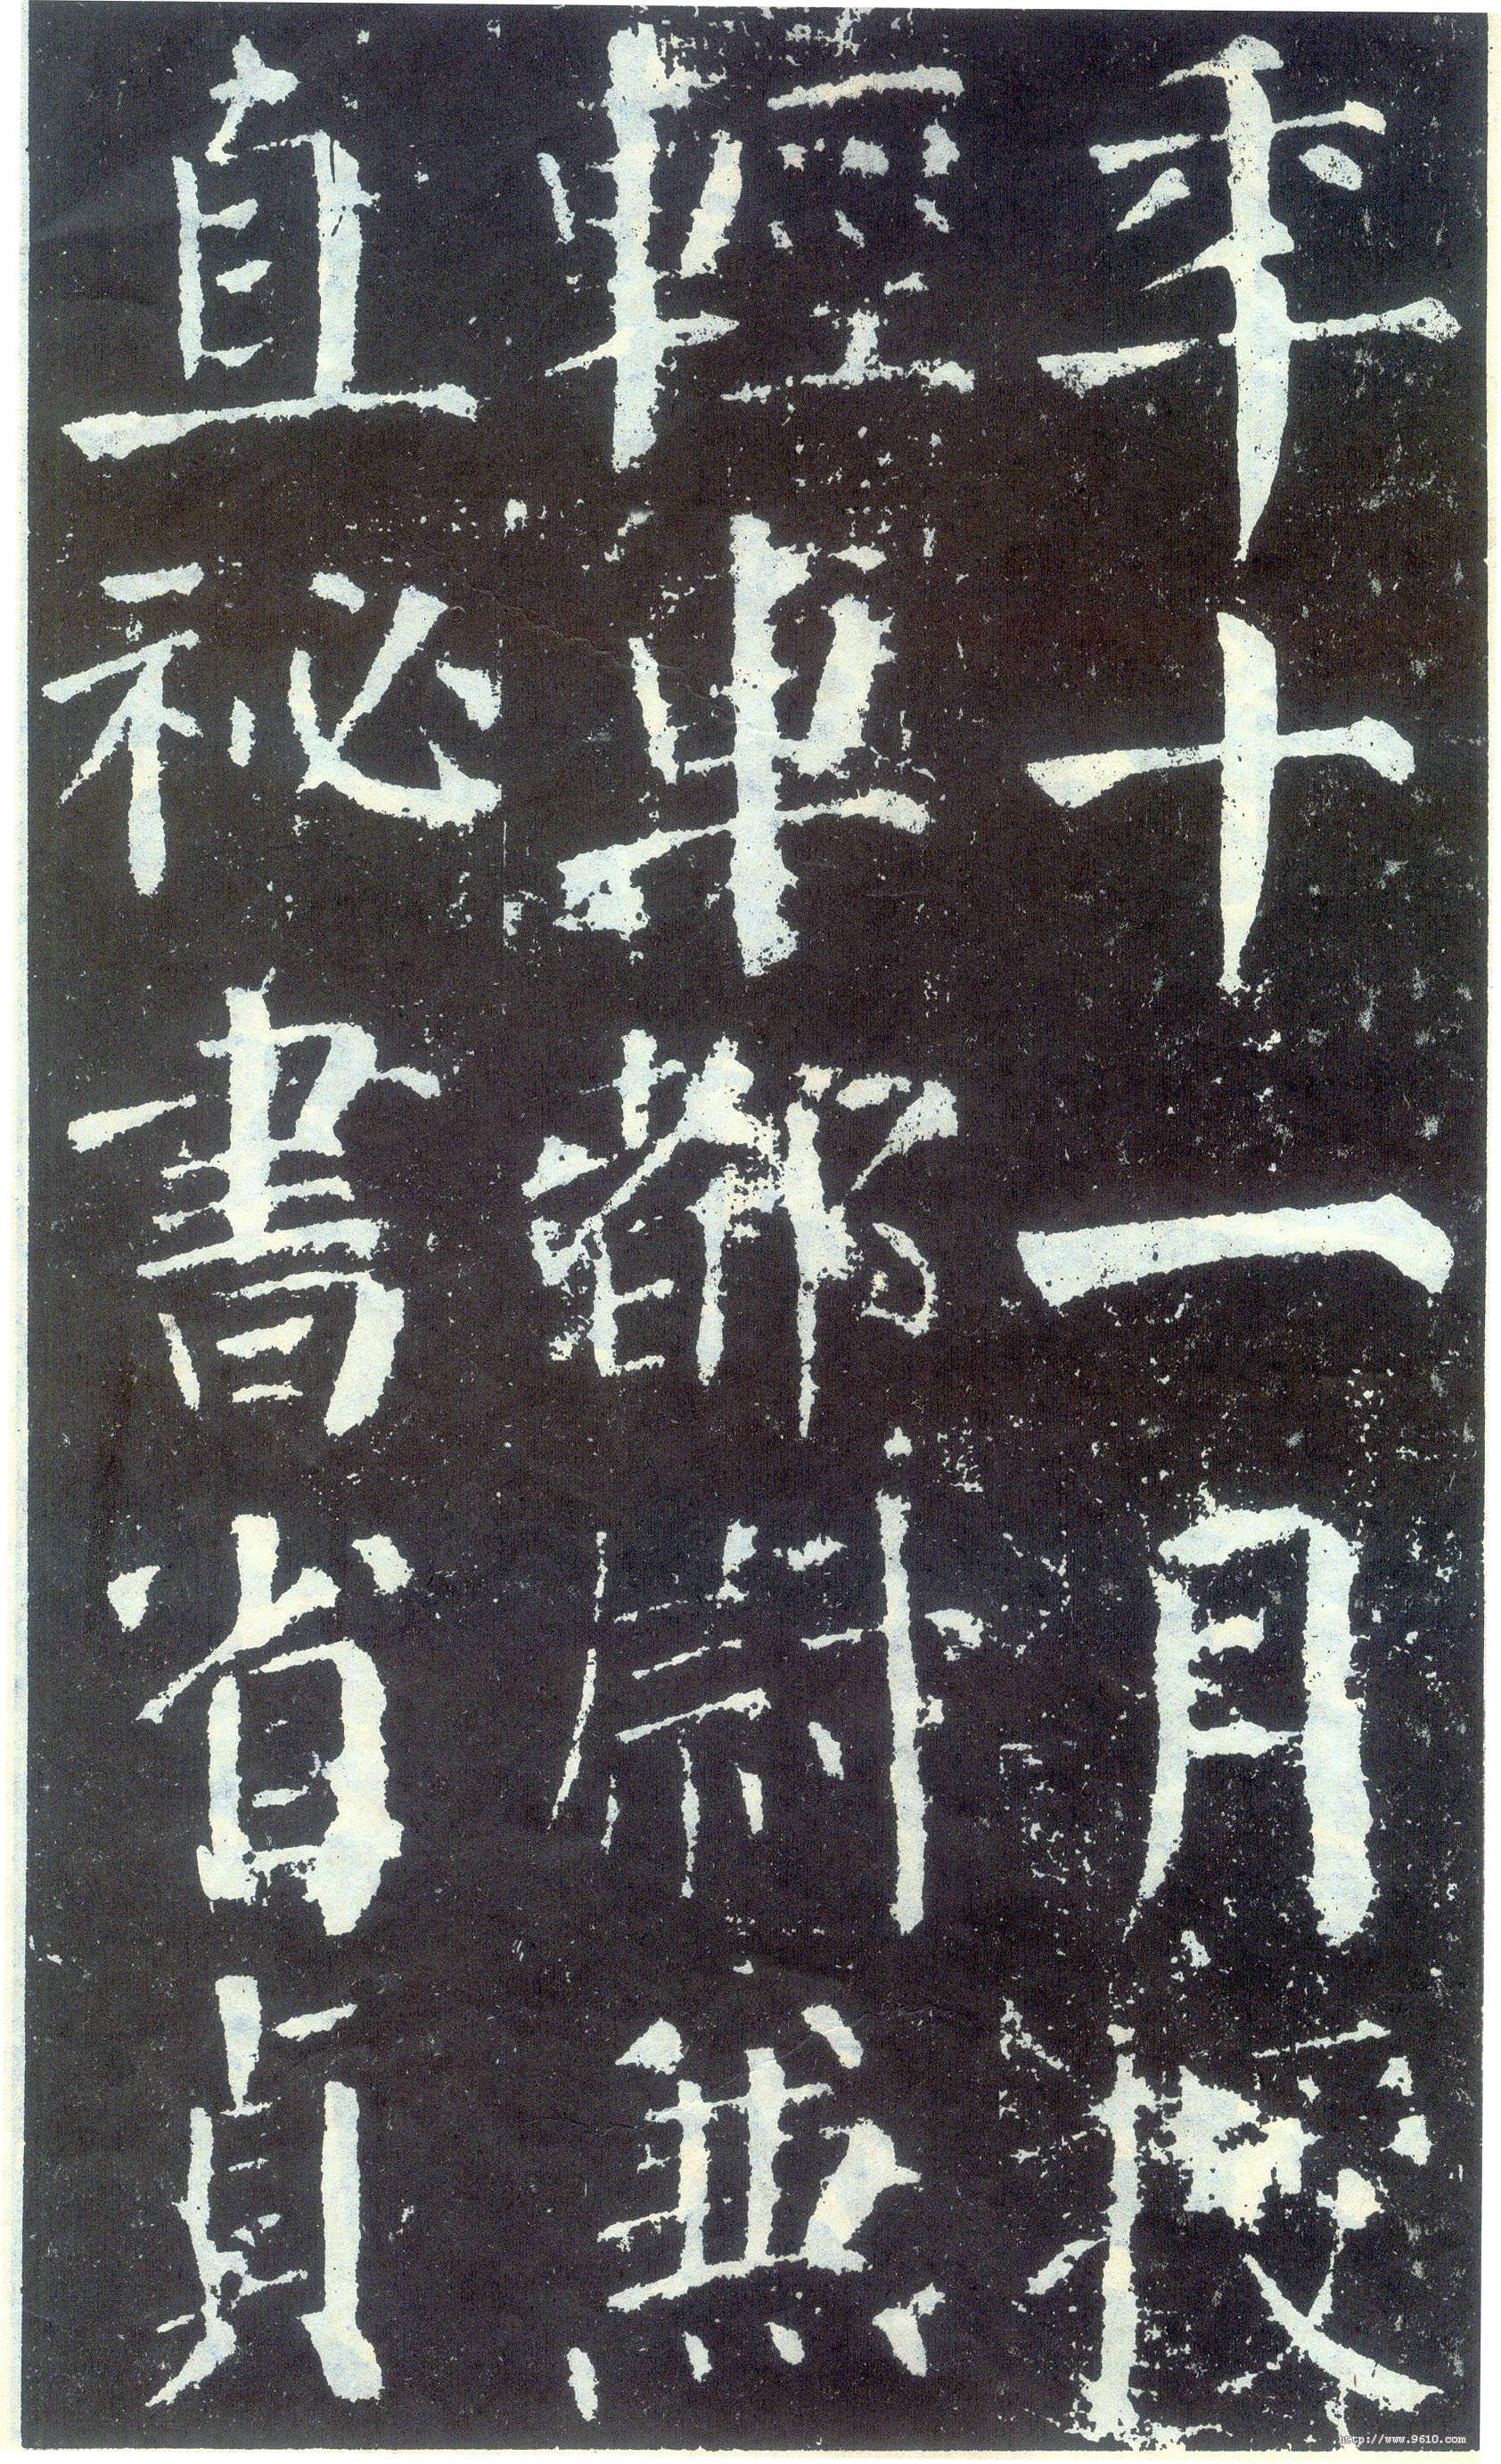 年十一月授
輕車都尉兼
直祕書省貞
http://www.9610.com